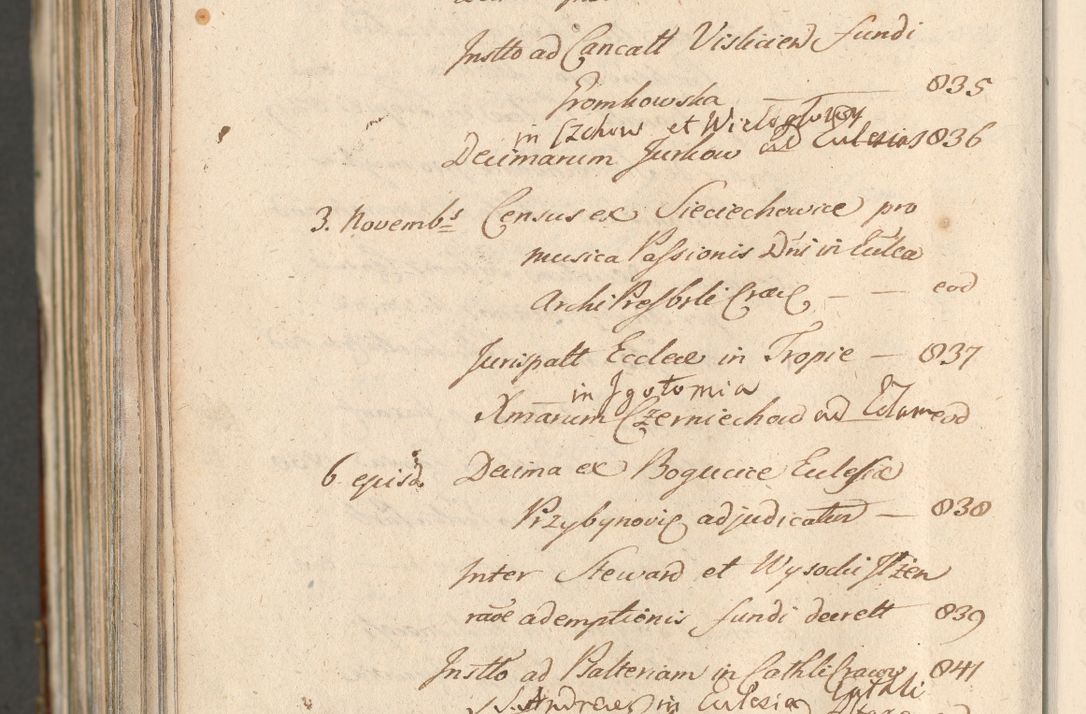 Instto ad Cancatt Vislicien fundi
Gromkowska 835
in Czchow et Wielogłowy
Decimarum Jurkow ad Eulesias 836
3. Novembs Census ex Sieciechowice pro
musica Passionis Dni in Eulea
ArchiPresbrli Crac — — eod
Jurispatt Ecclae in Tropie — 837
in Igołomia
Xmarum Czerniechow ad eod
6 ejusd Decima ex Bogucice Eulesiæ
Przybynovic adjudicatur — 838
Inter Steward et Wysocki
rače ademptionis fundi decrett 839
Instto ad Psalteriam in Cathli Cracov 841
S. Andreæ in Eulesia Cathli